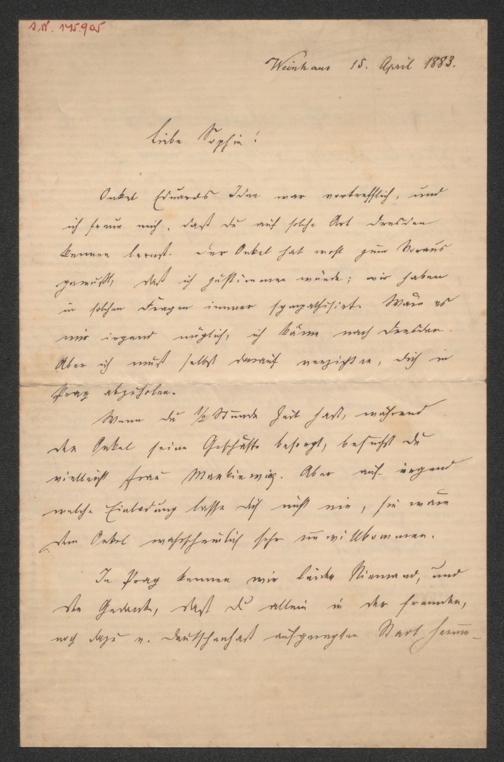 I.N. 175.905
Weinhaus 15. April 1883.
Liebe Sophie!
Onkel Eduards Idee war vortrefflich, und
ich freue mich, daß du auf solche Art Dresden
kennen lernst. Der Onkel hat wohl zum Voraus
gewußt, daß ich zustimmen würde; wir haben
in solchen Dingen immer sympathisirt. Wäre es
mir irgend möglich, ich käme nach Dresden.
Aber ich muß selbst darauf verzichten, dich in
Prag abzuholen.
Wenn du 1/2 Stunde Zeit hast, während
der Onkel seine Geschäfte besorgt, besuchst du
vielleicht Frau Mankiewicz. Aber auf irgend
welche Einladung lasse dich nicht ein, sie wäre
dem Onkel wahrscheinlich sehr unwillkommen.
In Prag kennen wir leider Niemand, und
der Gedanke, daß du allein in der fremden,
noch dazu v. Deutschenhaß aufgeregten Stadt herum-